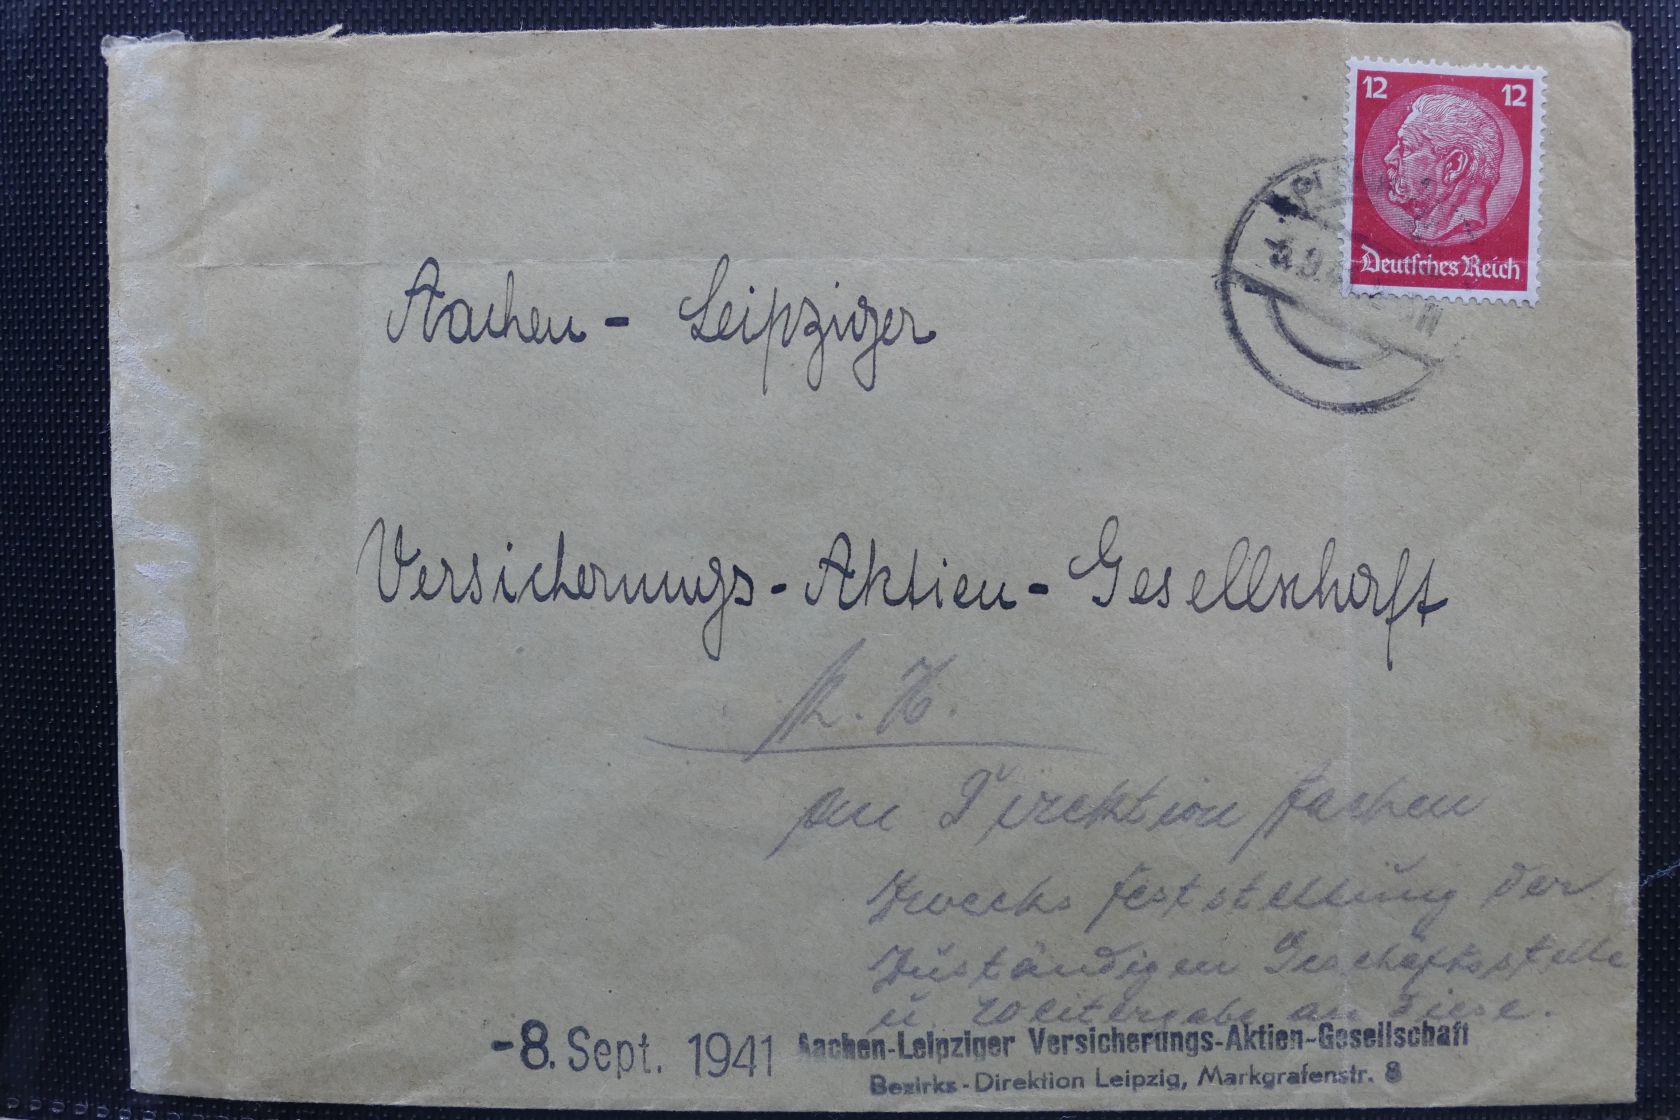 12 12
Deutsches Reich
Aachen - Leipziger
Versicherungs-Aktien-Gesellschaft
an Direktion Aachen
Zwecks Feststellung der
Zuständigen Geschäftsstelle
u. Weitergabe an diese.
-8. Sept. 1941
Aachen-Leipziger Versicherungs-Aktien-Gesellschaft
Bezirks-Direktion Leipzig, Markgrafenstr. 8